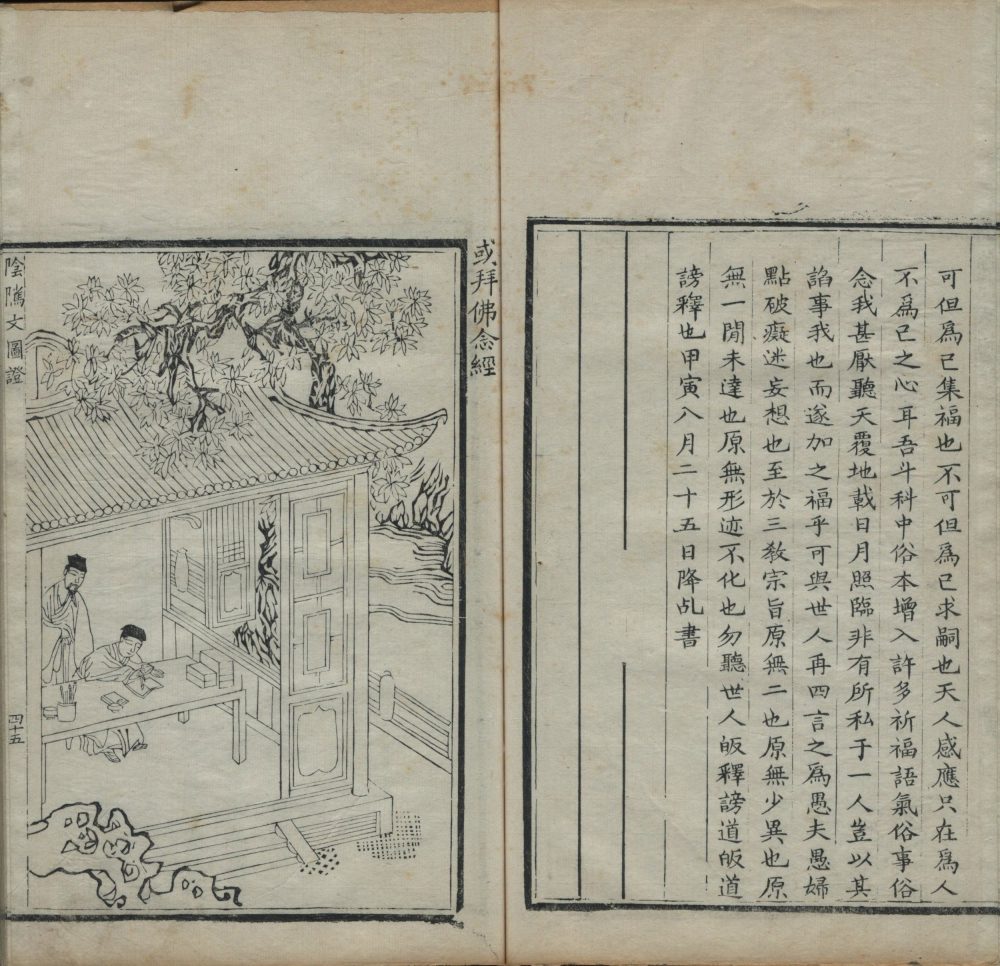 可但為己集福也不可但為己求嗣也天人感應只在為人
不為己之心耳吾斗科中俗本增入許多祈福語氣俗事俗
念我甚厭聽天覆地載日月照臨非有所私于一人豈以其
諂事我也而遂加之福乎可與世人再四言之為愚夫愚婦
點破癡迷妄想也至於三教宗旨原無二也原無少異也原
無一閒未達也原無形迹不化也勿聽世人皈釋謗道皈道
謗釋也甲寅八月二十五日降乩書
或拜佛念經
陰騭文圖證
四十五